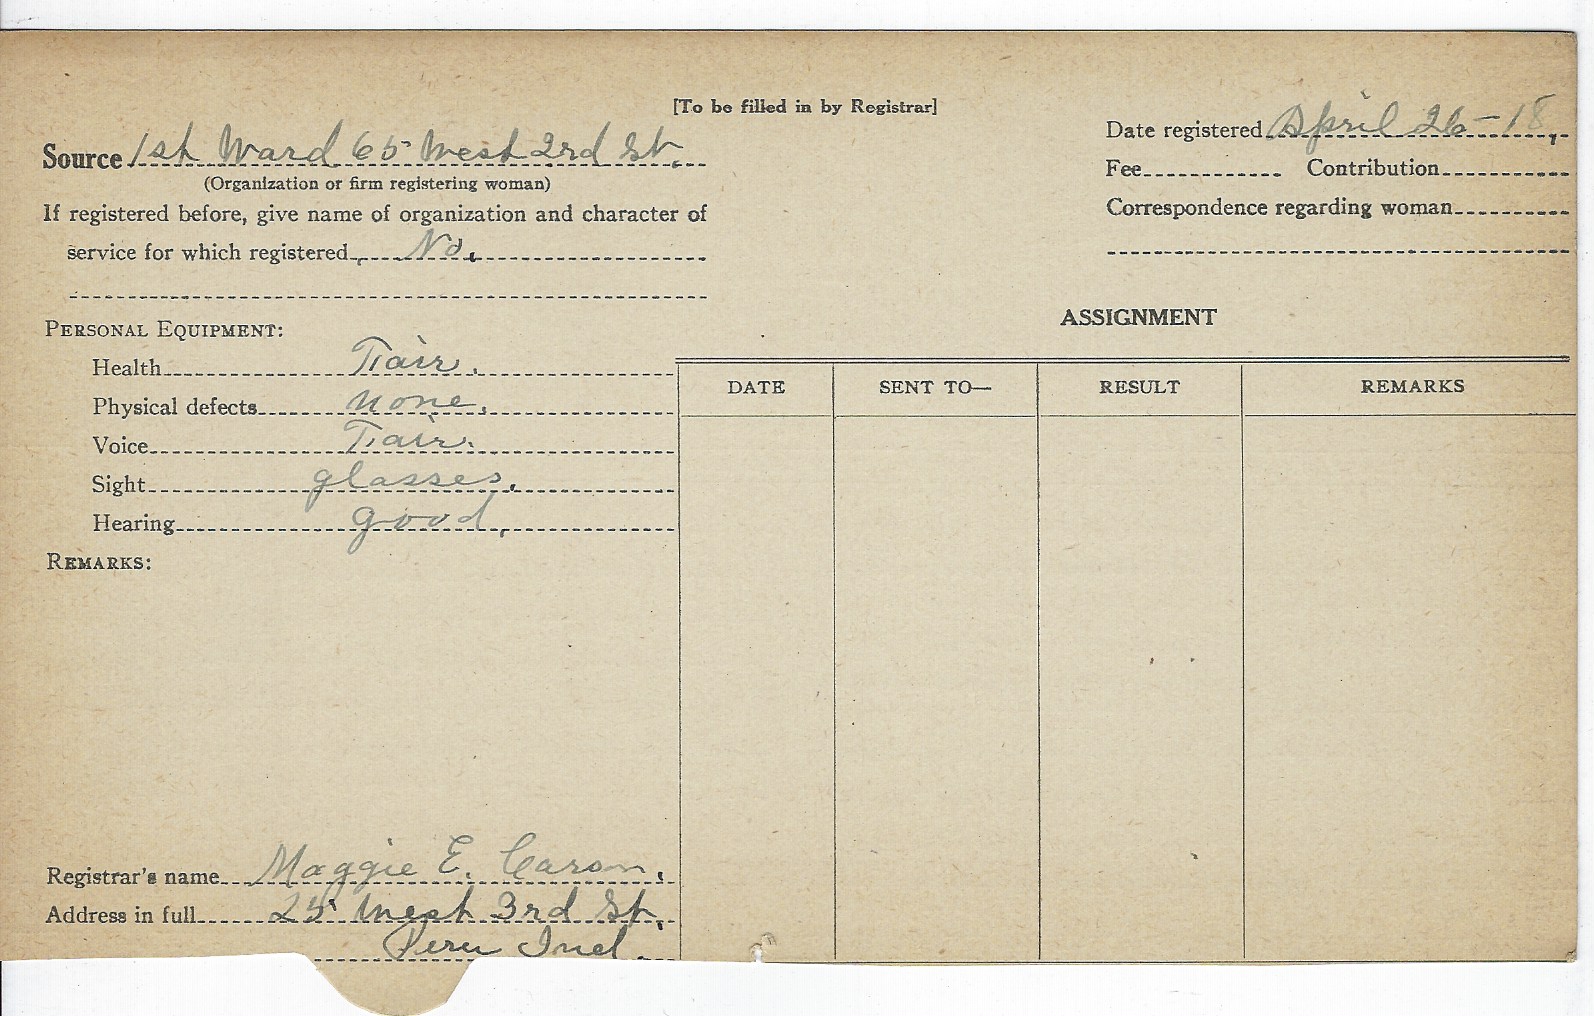 [To be filled in by Registrar]
Source 1st Ward 65 West 2nd St.
(Organization or firm registering woman)
If registered before, give name of organization and character of
service for which registered No.
Date registered April 26-18,
Fee Contribution
Correspondence regarding woman
PERSONAL EQUIPMENT:
Health Fair.
Physical defects none.
Voice Fair.
Sight glasses.
Hearing good,
REMARKS:
ASSIGNMENT
DATE SENT TO— RESULT REMARKS
Registrar's name Maggie E. Carson.
Address in full 25 West 3rd St.
Peru Ind.